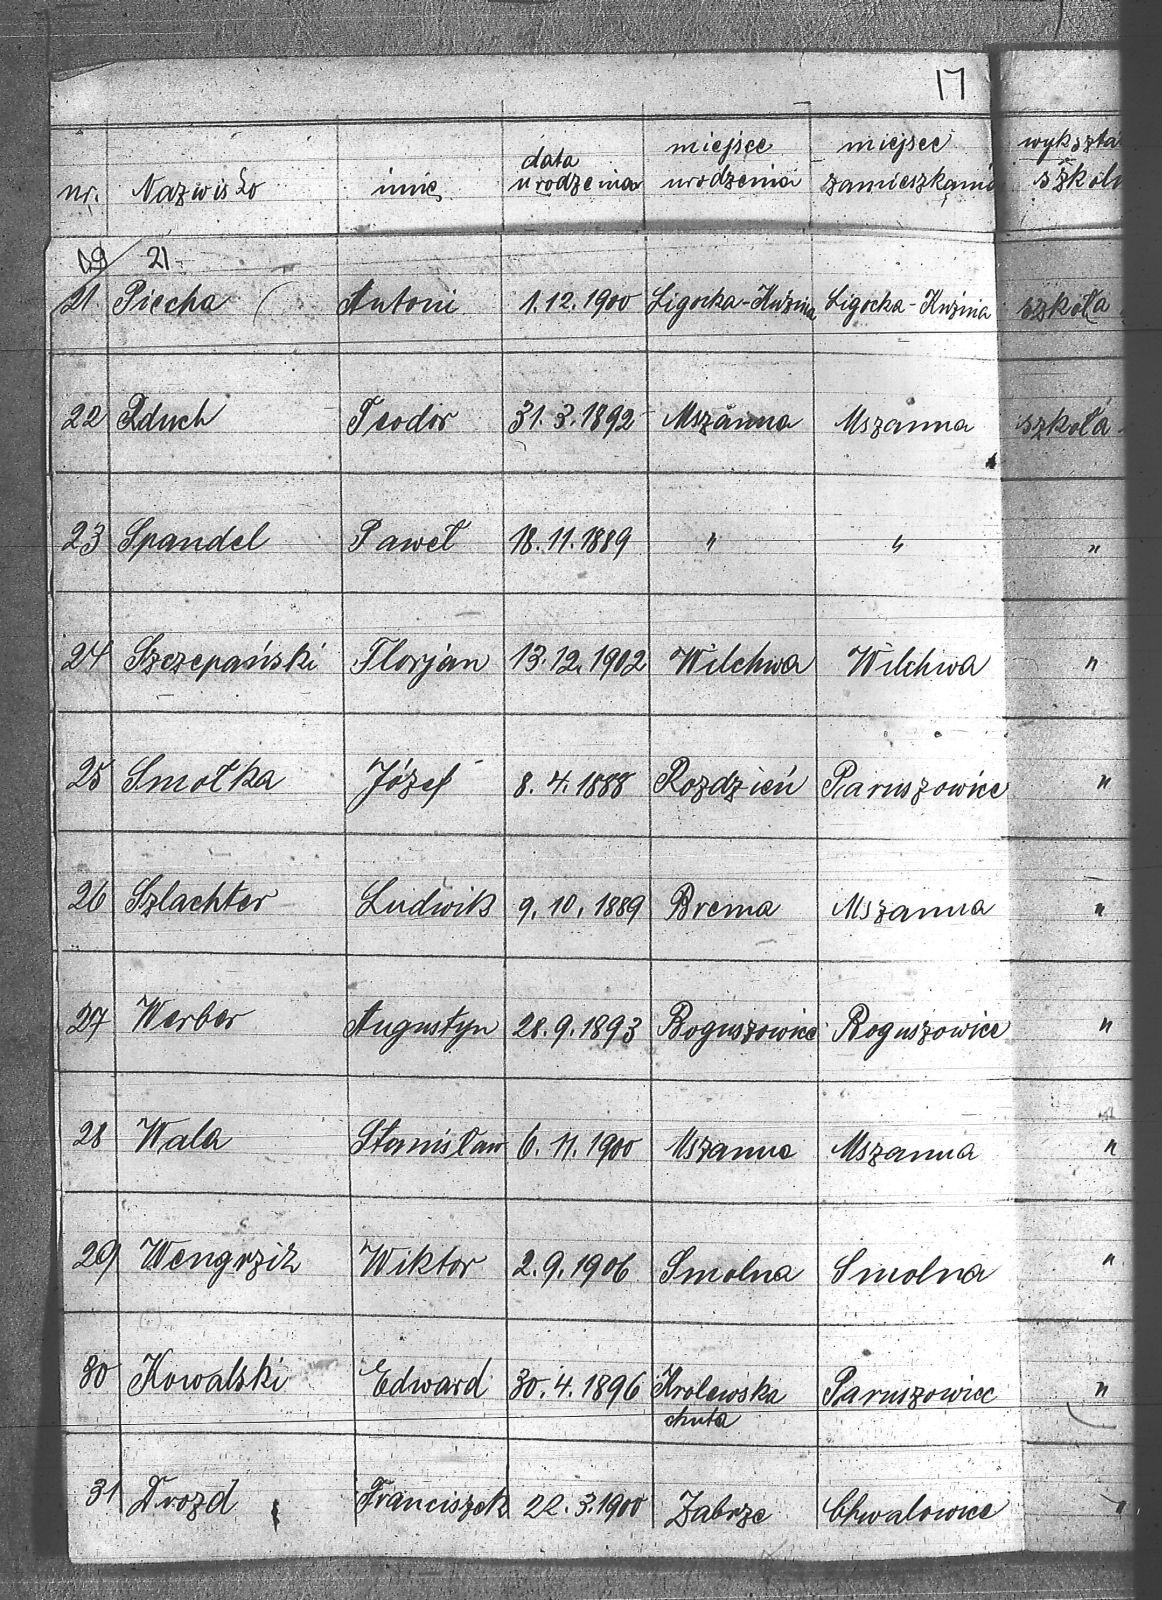 17
nr. Nazwisko imię data urodzenia miejsce urodzenia miejsce zamieszkania wykszta szkoln
21
21 Piecha Antoni 1.12.1900 Ligocka-Kuźnia Ligocka-Kuźnia szkoła
22 Zduch Teodor 31.3.1892 Mszanna Mszanna szkoła
23 Spandel Paweł 18.11.1889 " " "
24 Szczepański Florjan 13.12.1902 Wilchwa Wilchwa "
25 Smołka Józef 8.4.1888 Rozdzień Paruszowice "
26 Szlachter Ludwik 9.10.1889 Brema Mszanna "
27 Werber Augustyn 28.9.1893 Boguszowice Boguszowice "
28 Wala Stanisław 6.11.1900 Mszanna Mszanna "
29 Wengrzik Wiktor 2.9.1906 Smolna Smolna "
30 Kowalski Edward 30.4.1896 Krolewska Paruszowice "
chuta
31 Drozd Franciszek 22.3.1900 Zabrze Chwalowice "